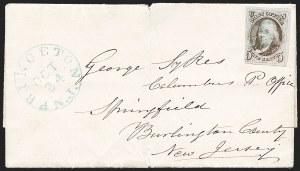 PRINCETON N.J.
OCT
24
George Sykes
Columbus P. Office
Springfield
Burlington County
New Jersey